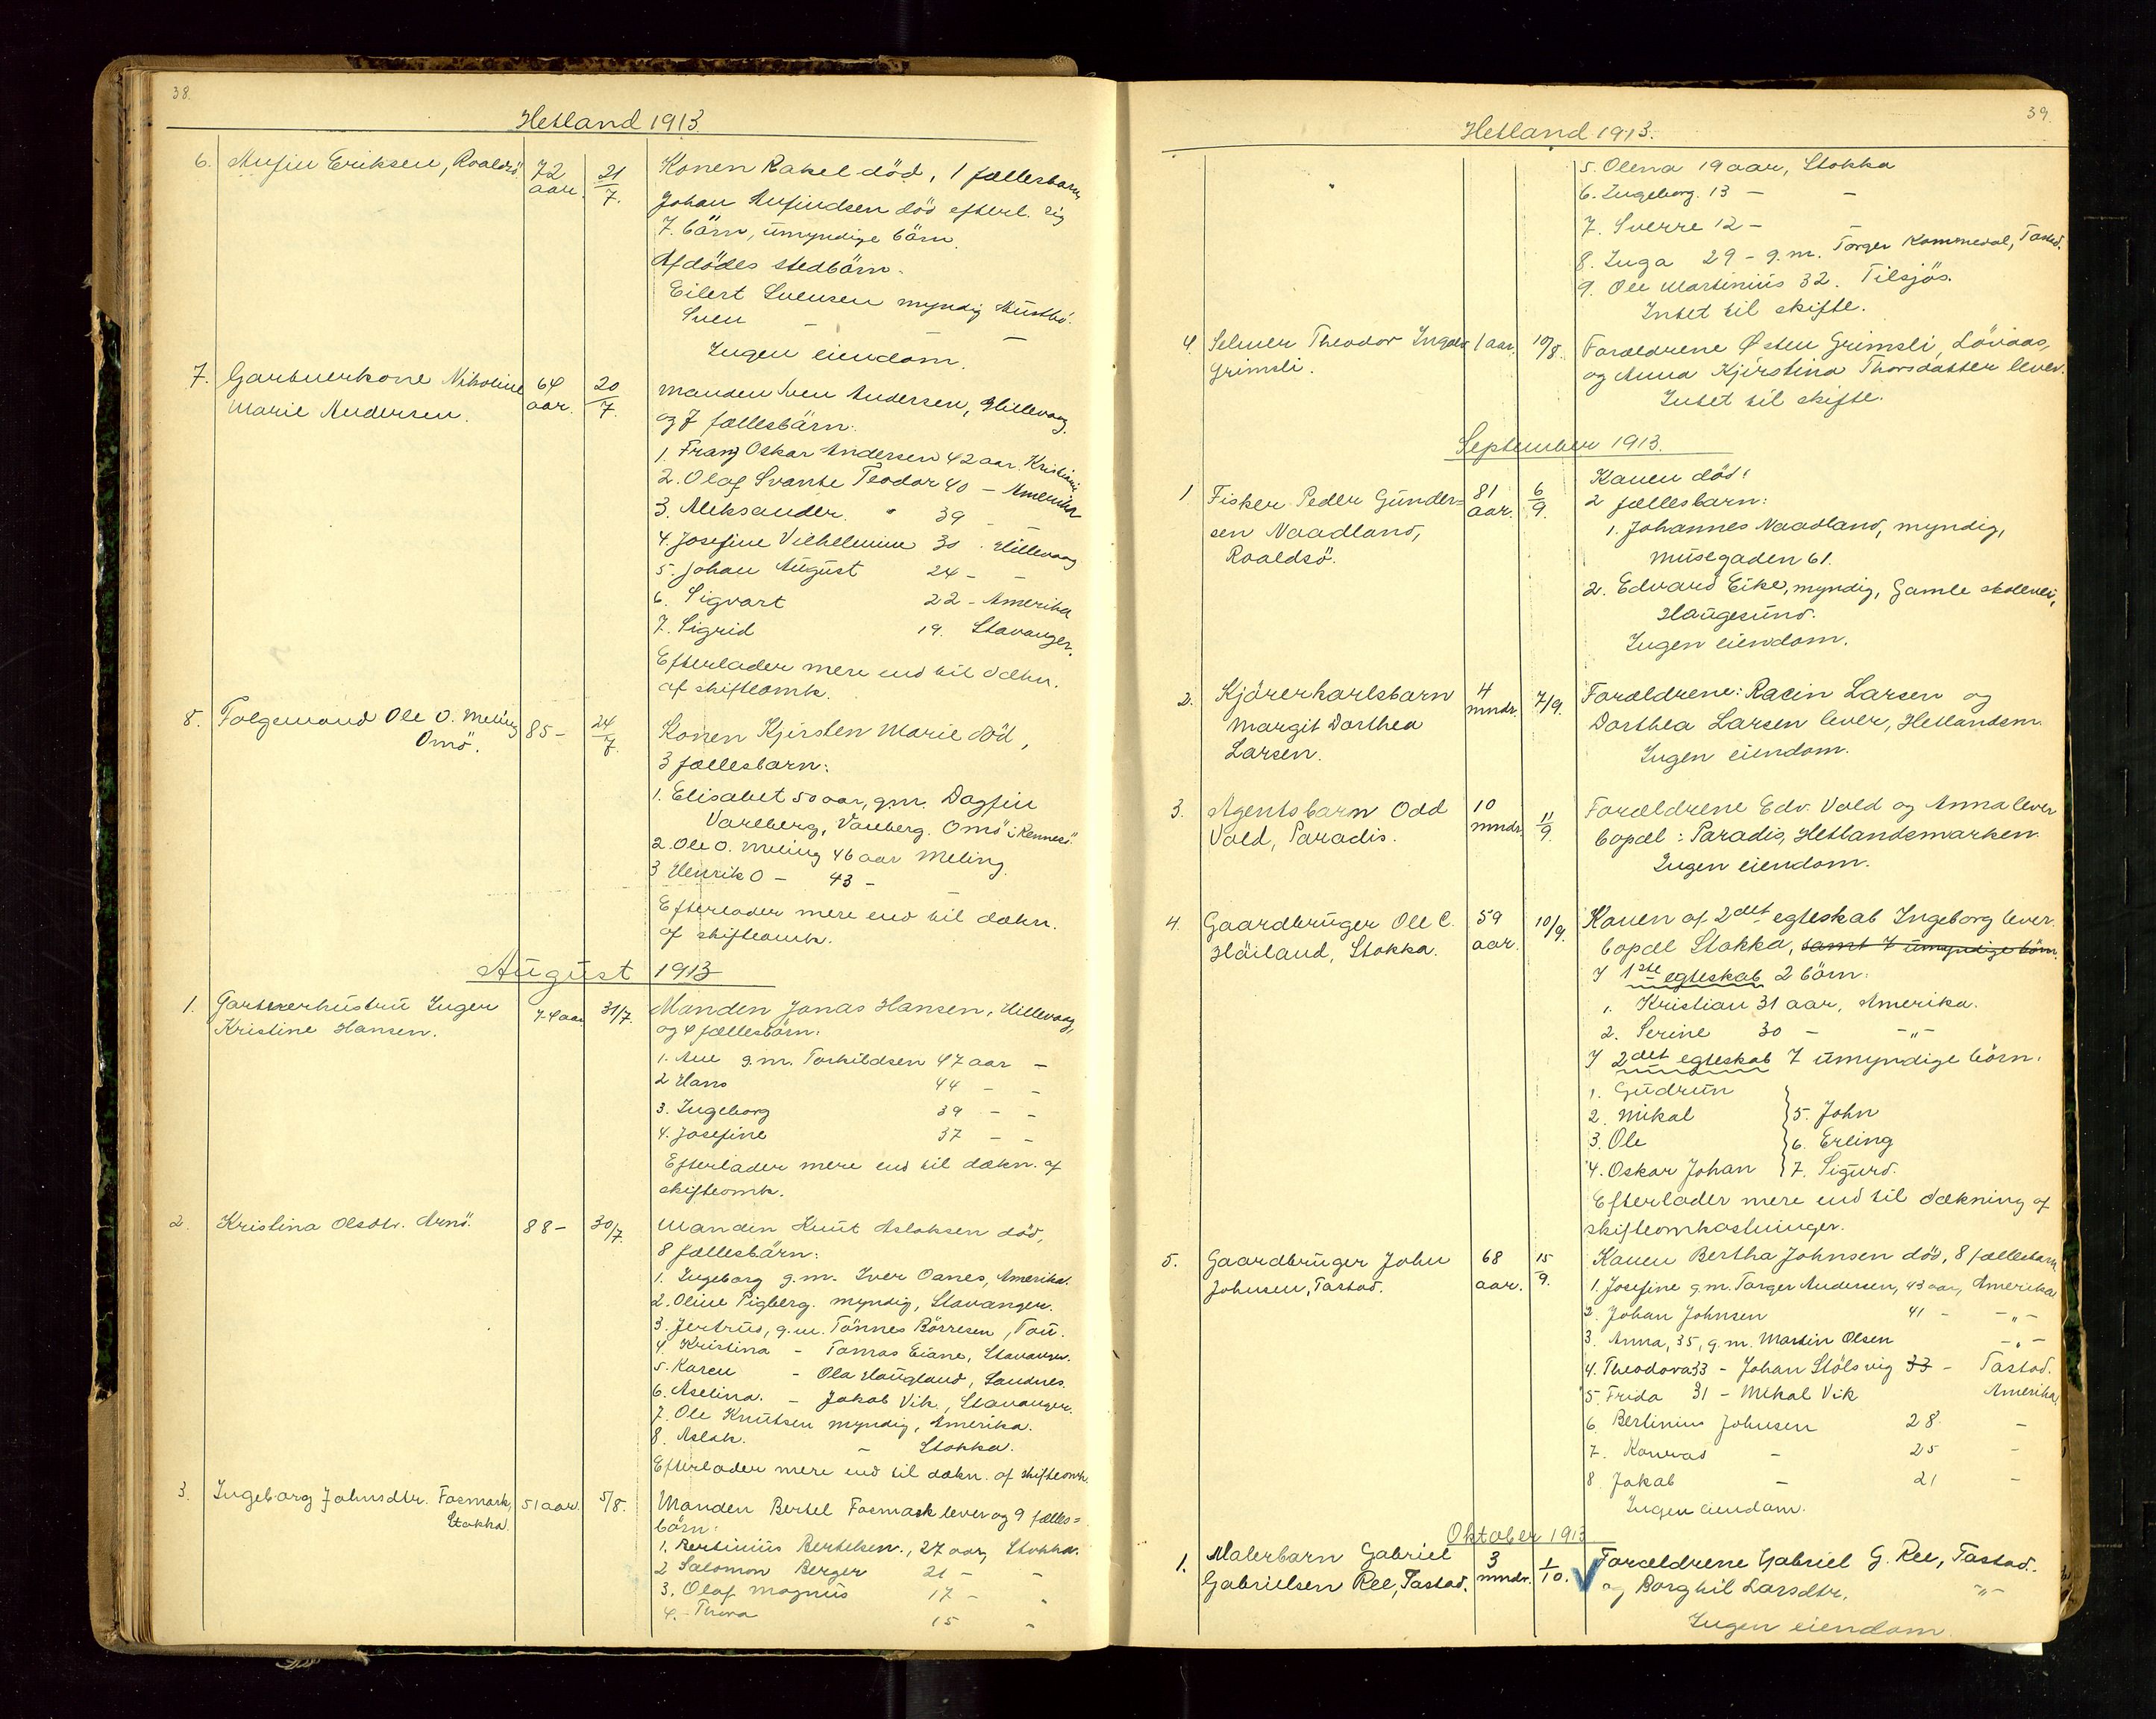 38.
Hetland 1913.
6. Anfin Eriksen, Roaldsö 72 aar. 21/7. Konen Rakel död, 1 fællesbarn,
Johan Anfindsen död efterl. sig
7 börn, umyndige börn.
Afdödes stedbörn.
Eilert Svensen myndig
Sven – –
Ingen eiendom.
7. Garbnerkone Nikoline 64 20/7. Manden Sven Andersen, Hillevaag,
Marie Andersen. aar. og 7 fællesbörn:
1. Franz Oskar Andersen 42 aar. Kristiania
2. Olaf Svante Teodor 40 – Amerika
3. Aleksander " 39 – –
4. Josefine Vilhelmine 30 . Hillevaag
5. Johan August 24 – –
6. Sigvart 22 – Amerika
7. Sigrid 19. Stavanger.
Efterlader mere end til dækn.
af skifteomk.
8. Folgemand Ole O. Meling 85 – 24/7. Konen Kjirsten Marie död,
Omö. 3 fællesbarn:
1. Elisabet 50 aar, g.m. Dagfin
Varberg, Vauberg. Omö i Rennesö.
2. Ole O. Meling 46 aar Meling.
3 Henrik O – 43 – –
Efterlader mere end til dækn.
af skifteomk.
August 1913
1. Gartnerhustru Inger 74 aar 31/7. Manden Jonas Hansen, Hillevaag,
Kristine Hansen. og 4 fællesbörn:
1. Ane g.m. Torkildsen 47 aar –
2 Hans 44 – –
3. Ingeborg 39 – –
4. Josefine 37 – –
Efterlader mere end til dækn. af
skifteomk.
2. Kristina Olsdtr. Arnö. 88 – 30/7. Manden Knut Aslaksen död,
8 fællesbörn:
1. Ingeborg g.m. Iver Oanes, Amerika.
2. Oline Tigberg. myndig, Stavanger.
3. Jertrud, g.m. Tönnes Börresen, Tau.
4. Kristina – Tomas Eiane, Stavanger.
5. Karen – Ola Haugland, Sandnes.
6. Aselina. – Jakob Vik, Stavanger.
7. Ole Knutsen myndig, Amerika.
8. Aslak. – Stokka.
Efterlader mere end til dækn. af skifteomk.
3. Ingeborg Johnsdtr. Fosmark, 51 aar. 5/8. Manden Bertel Fosmark lever og 9 fælles=
Stokka. börn:
1. Bertinius Bertelsen., 27 aar, Stokka.
2 Salomon Berger 21 – –
3. Olaf Magnus 17 – "
4. Thora 15 –
39.
Hetland 1913.
5. Olena 19 aar, Stokka
6. Ingeborg. 13 – –
7. Sverre 12 – –
8. Inga 29 – g.m. Torger Kommedal, Tastad.
9. Ole Martinius 32. Tilsjös.
Intet til skifte.
4. Selmer Theodor Ingolv 1 aar. 10/8. Forældrene Østen Grimsli, Lövaas,
Grimsli. og Anna Kjirstina Thorsdatter lever.
Intet til skifte.
September 1913.
1 Fisker Peder Gunder= 81 aar. 6/9. Konen död!
sen Naadland, 2 fællesbarn:
Roaldsö. 1. Johannes Naadland, myndig,
Musegaden 61.
2. Edvard Eike, myndig, Gamle skolevei,
Haugesund.
Ingen eiendom.
2. Kjörerkarlsbarn 4 mndr. 7/9. Forældrene: Racin Larsen og
Margit Dorthea Dorthea Larsen lever, Hetlandsm.
Larsen. Ingen eiendom.
3. Agentsbarn Odd 10 mndr. 11/9. Forældrene Edv. Vold og Anna lever
Vold, Paradis. bopæl: Paradis, Hetlandsmarken.
Ingen eiendom.
4. Gaardbruger Ole C. 59 10/9. Konen af 2det egteskab Ingeborg lever.
Höiland, Stokka. aar. bopæl Stokka, samt 7 umyndige börn.
I 1ste egteskab 2 börn:
1. Kristian 31 aar, Amerika.
2. Serine 30 – –"–
I 2det egteskab 7 umyndige börn.
1. Gudrun
2. Mikal 5. John
3. Ole 6. Erling
4. Oskar Johan 7. Sigurd.
Efterlader mere end til dækning af
skifteomkostninger.
5. Gaardbruger John 68 15/9. Konen Bertha Johnsen död, 8 fællesbarn
Johnsen, Tastad. aar. 1. Josefine g.m. Torger Andersen, 43 aar, Amerika
2. Johan Johnsen 41 – –"–
3. Anna, 35, g.m. Martin Olsen –"–
4. Theodora 33 – Johan Stölsvig 33 – Tastad.
5. Frida 31 – Mikal Vik Amerika
6. Bertinius Johnsen 28 –
7. Konrad – 25 –
8. Jakob – 21 –
Ingen eiendom.
Oktober 1913
1. Malerbarn Gabriel 3 mndr. 1/10. Forældrene Gabriel G. Ree, Tastad.
Gabrielsen Ree, Tastad. og Borghil Larsdtr. –"–
Ingen eiendom